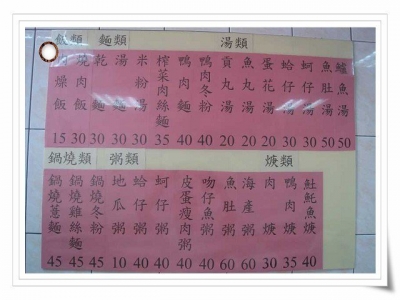 飯類
麵類
湯類
肉燥飯 15
燒肉飯 30
乾麵 30
湯麵 30
米粉湯 30
榨菜肉絲麵 35
鴨肉麵 40
鴨肉冬粉 40
貢丸湯 20
魚丸湯 20
蛋花湯 20
蛤仔湯 30
蚵仔湯 30
魚肚湯 50
鱸魚湯 50
鍋燒類
粥類
焿類
鍋燒薏麵 45
鍋燒雞絲麵 45
鍋燒冬粉 45
地瓜粥 10
蛤仔粥 40
蚵仔粥 40
皮蛋瘦肉粥 40
吻仔魚粥 40
魚肚粥 60
海產粥 60
肉焿 30
鴨肉焿 35
魠魚焿 40